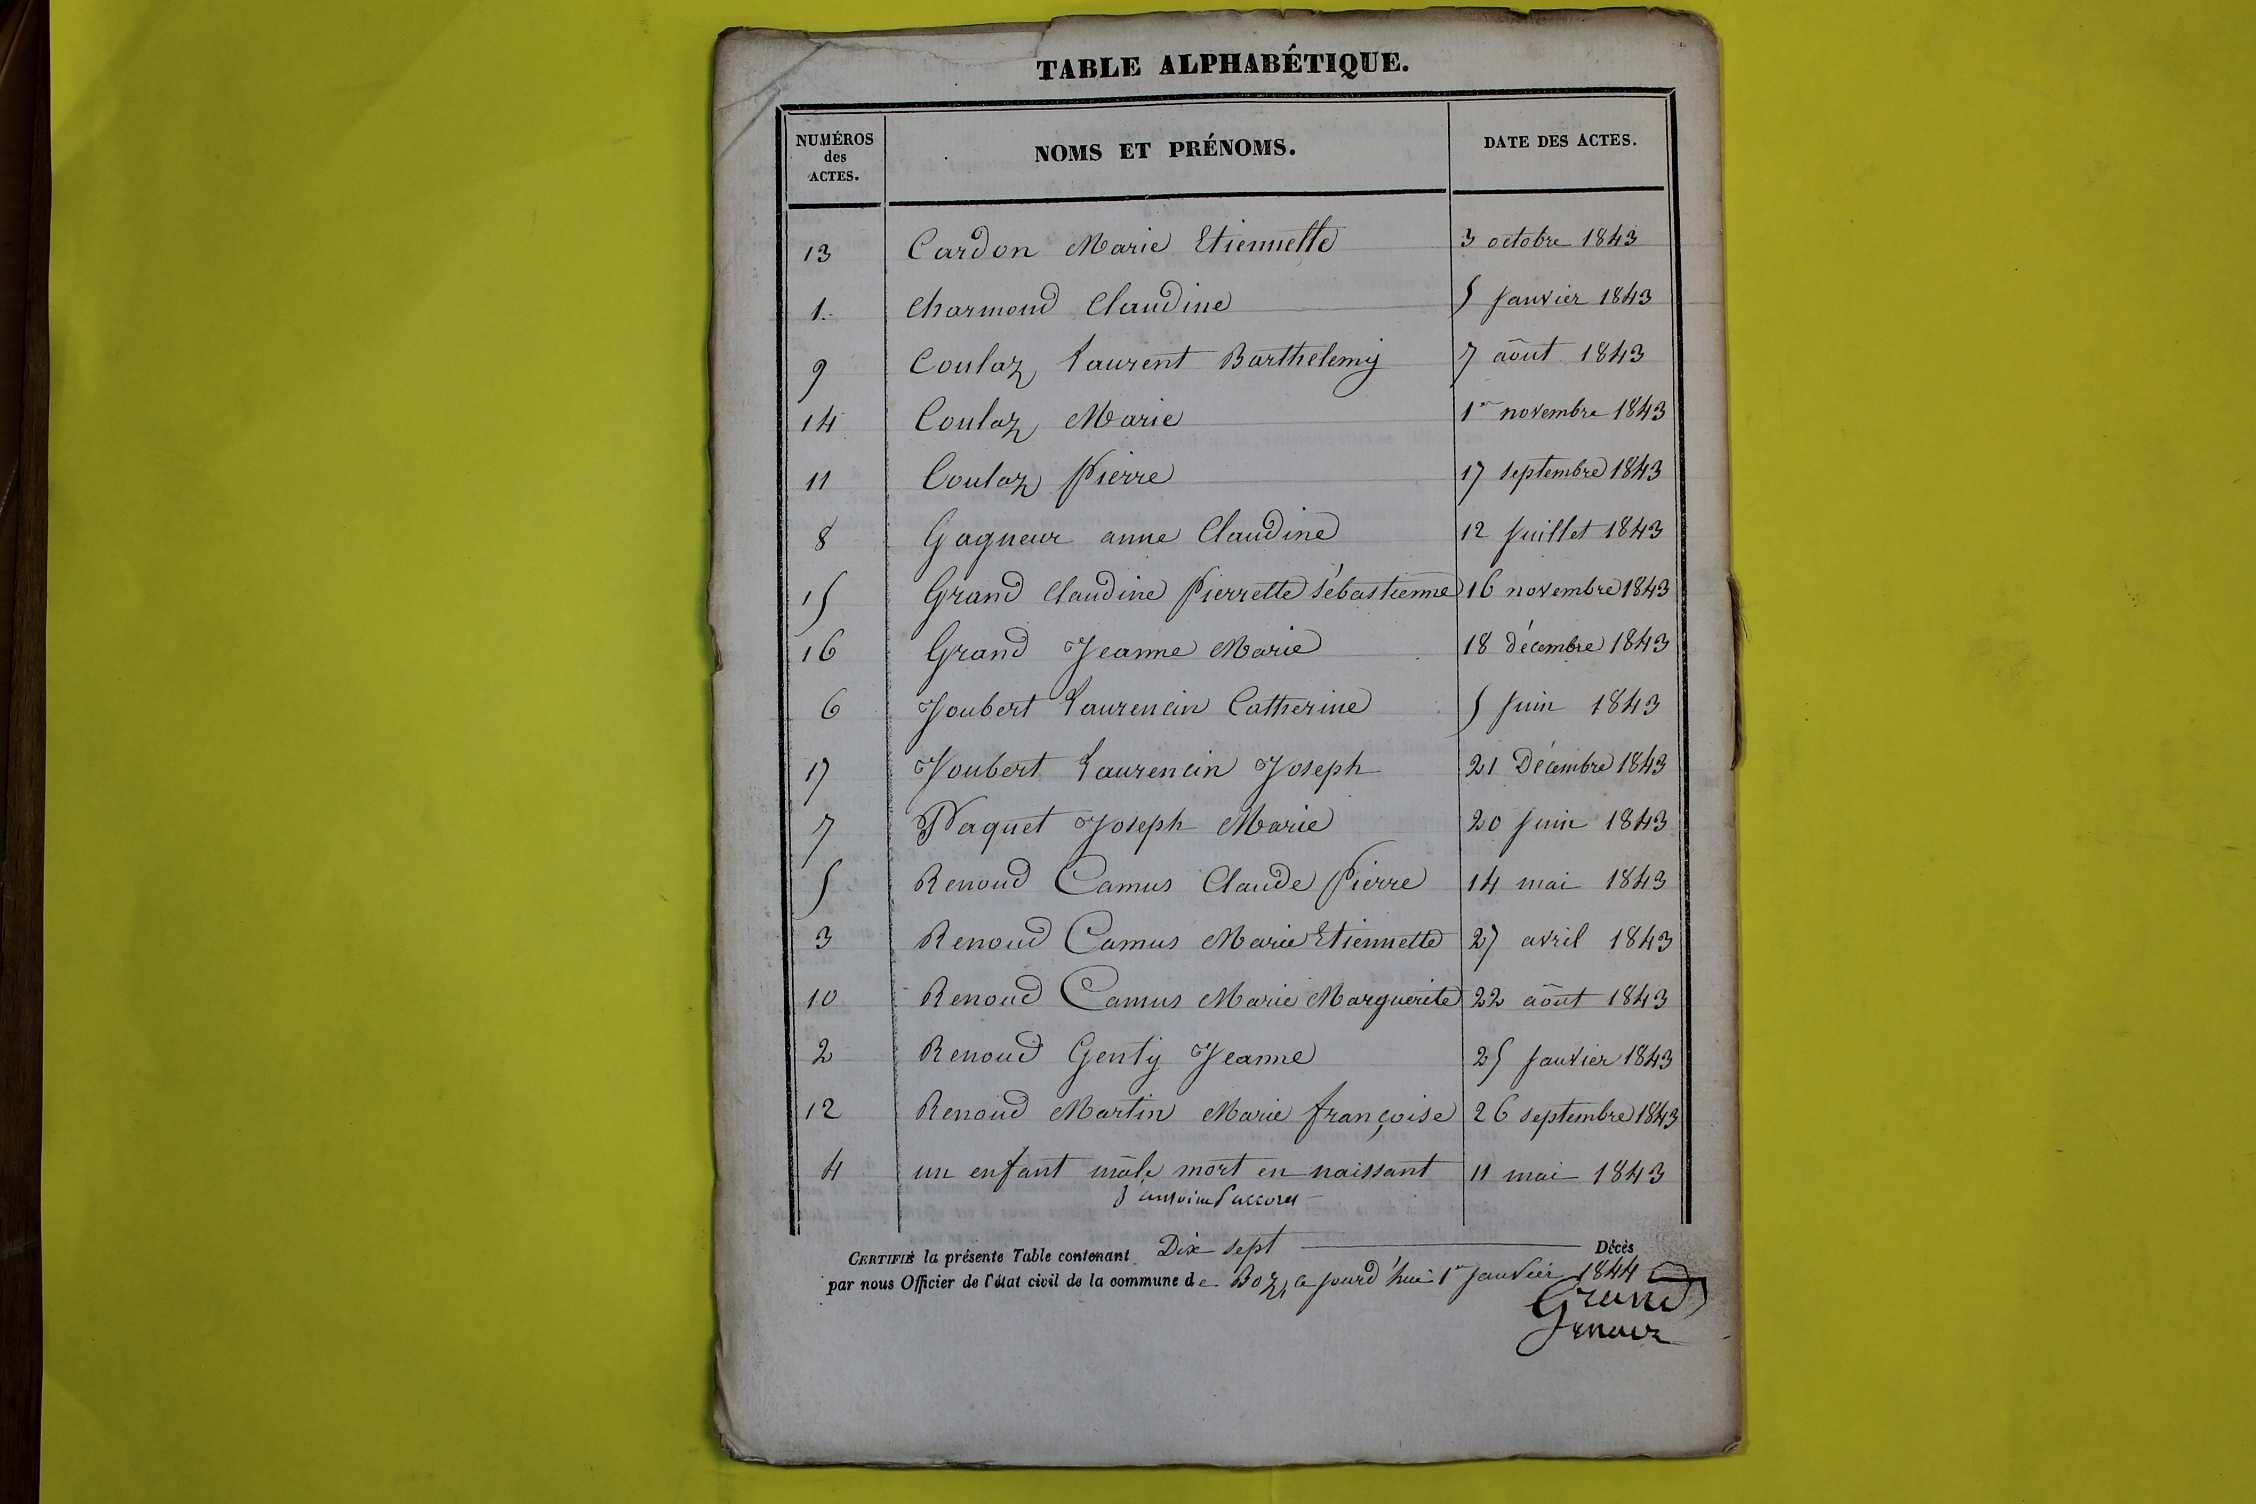 TABLE ALPHABÉTIQUE.
NUMÉROS des ACTES. NOMS ET PRÉNOMS. DATE DES ACTES.
13 Cardon Marie Etiennette 3 octobre 1843
1. Charmond Claudine 5 Janvier 1843
9 Coulaz Laurent Barthelemy 7 août 1843
14 Coulaz Marie 1er novembre 1843
11 Coulaz Pierre 17 septembre 1843
8 Gagneur anne Claudine 12 Juillet 1843
15 Grand Claudine Pierrette Sébastienne 16 novembre 1843
16 Grand Jeanne Marie 18 décembre 1843
6 Joubert Laurencin Catherine 5 Juin 1843
17 Joubert Laurencin Joseph 21 Décembre 1843
7 Paquet Joseph Marie 20 Juin 1843
5 Renoud Camus Claude Pierre 14 mai 1843
3 Renoud Camus Marie Etiennette 27 avril 1843
10 Renoud Camus Marie Marguerite 22 août 1843
2 Renoud Genty Jeanne 25 Janvier 1843
12 Renoud Martin Marie françoise 26 septembre 1843
4 un enfant mâle mort en naissant 11 mai 1843
CERTIFIÉ la présente Table contenant Dix sept Décès
par nous Officier de l'état civil de la commune de Boz, ce jourd'hui 1er Janvier 1844
Grand